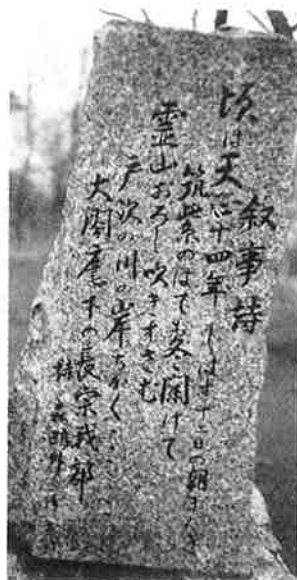 叙事詩
頃は天正十四年 しはす十二日の朝まだき
筑紫のはても冬闌けて
霊山おろし吹きすさむ
戸次の川の岸ちかく
大閤麾下の長宗我部